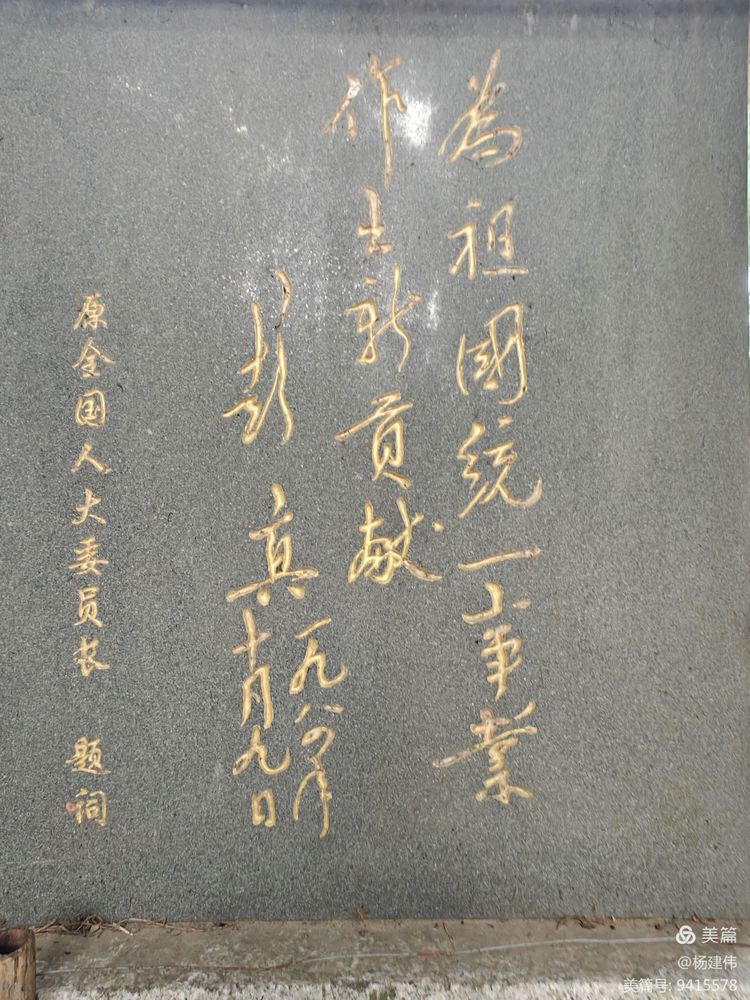 為祖國統一事業
作出新貢献
彭真
一九八四年
十月九日
原全国人大委员长 题词
美篇
@杨建伟
美篇号: 9415578